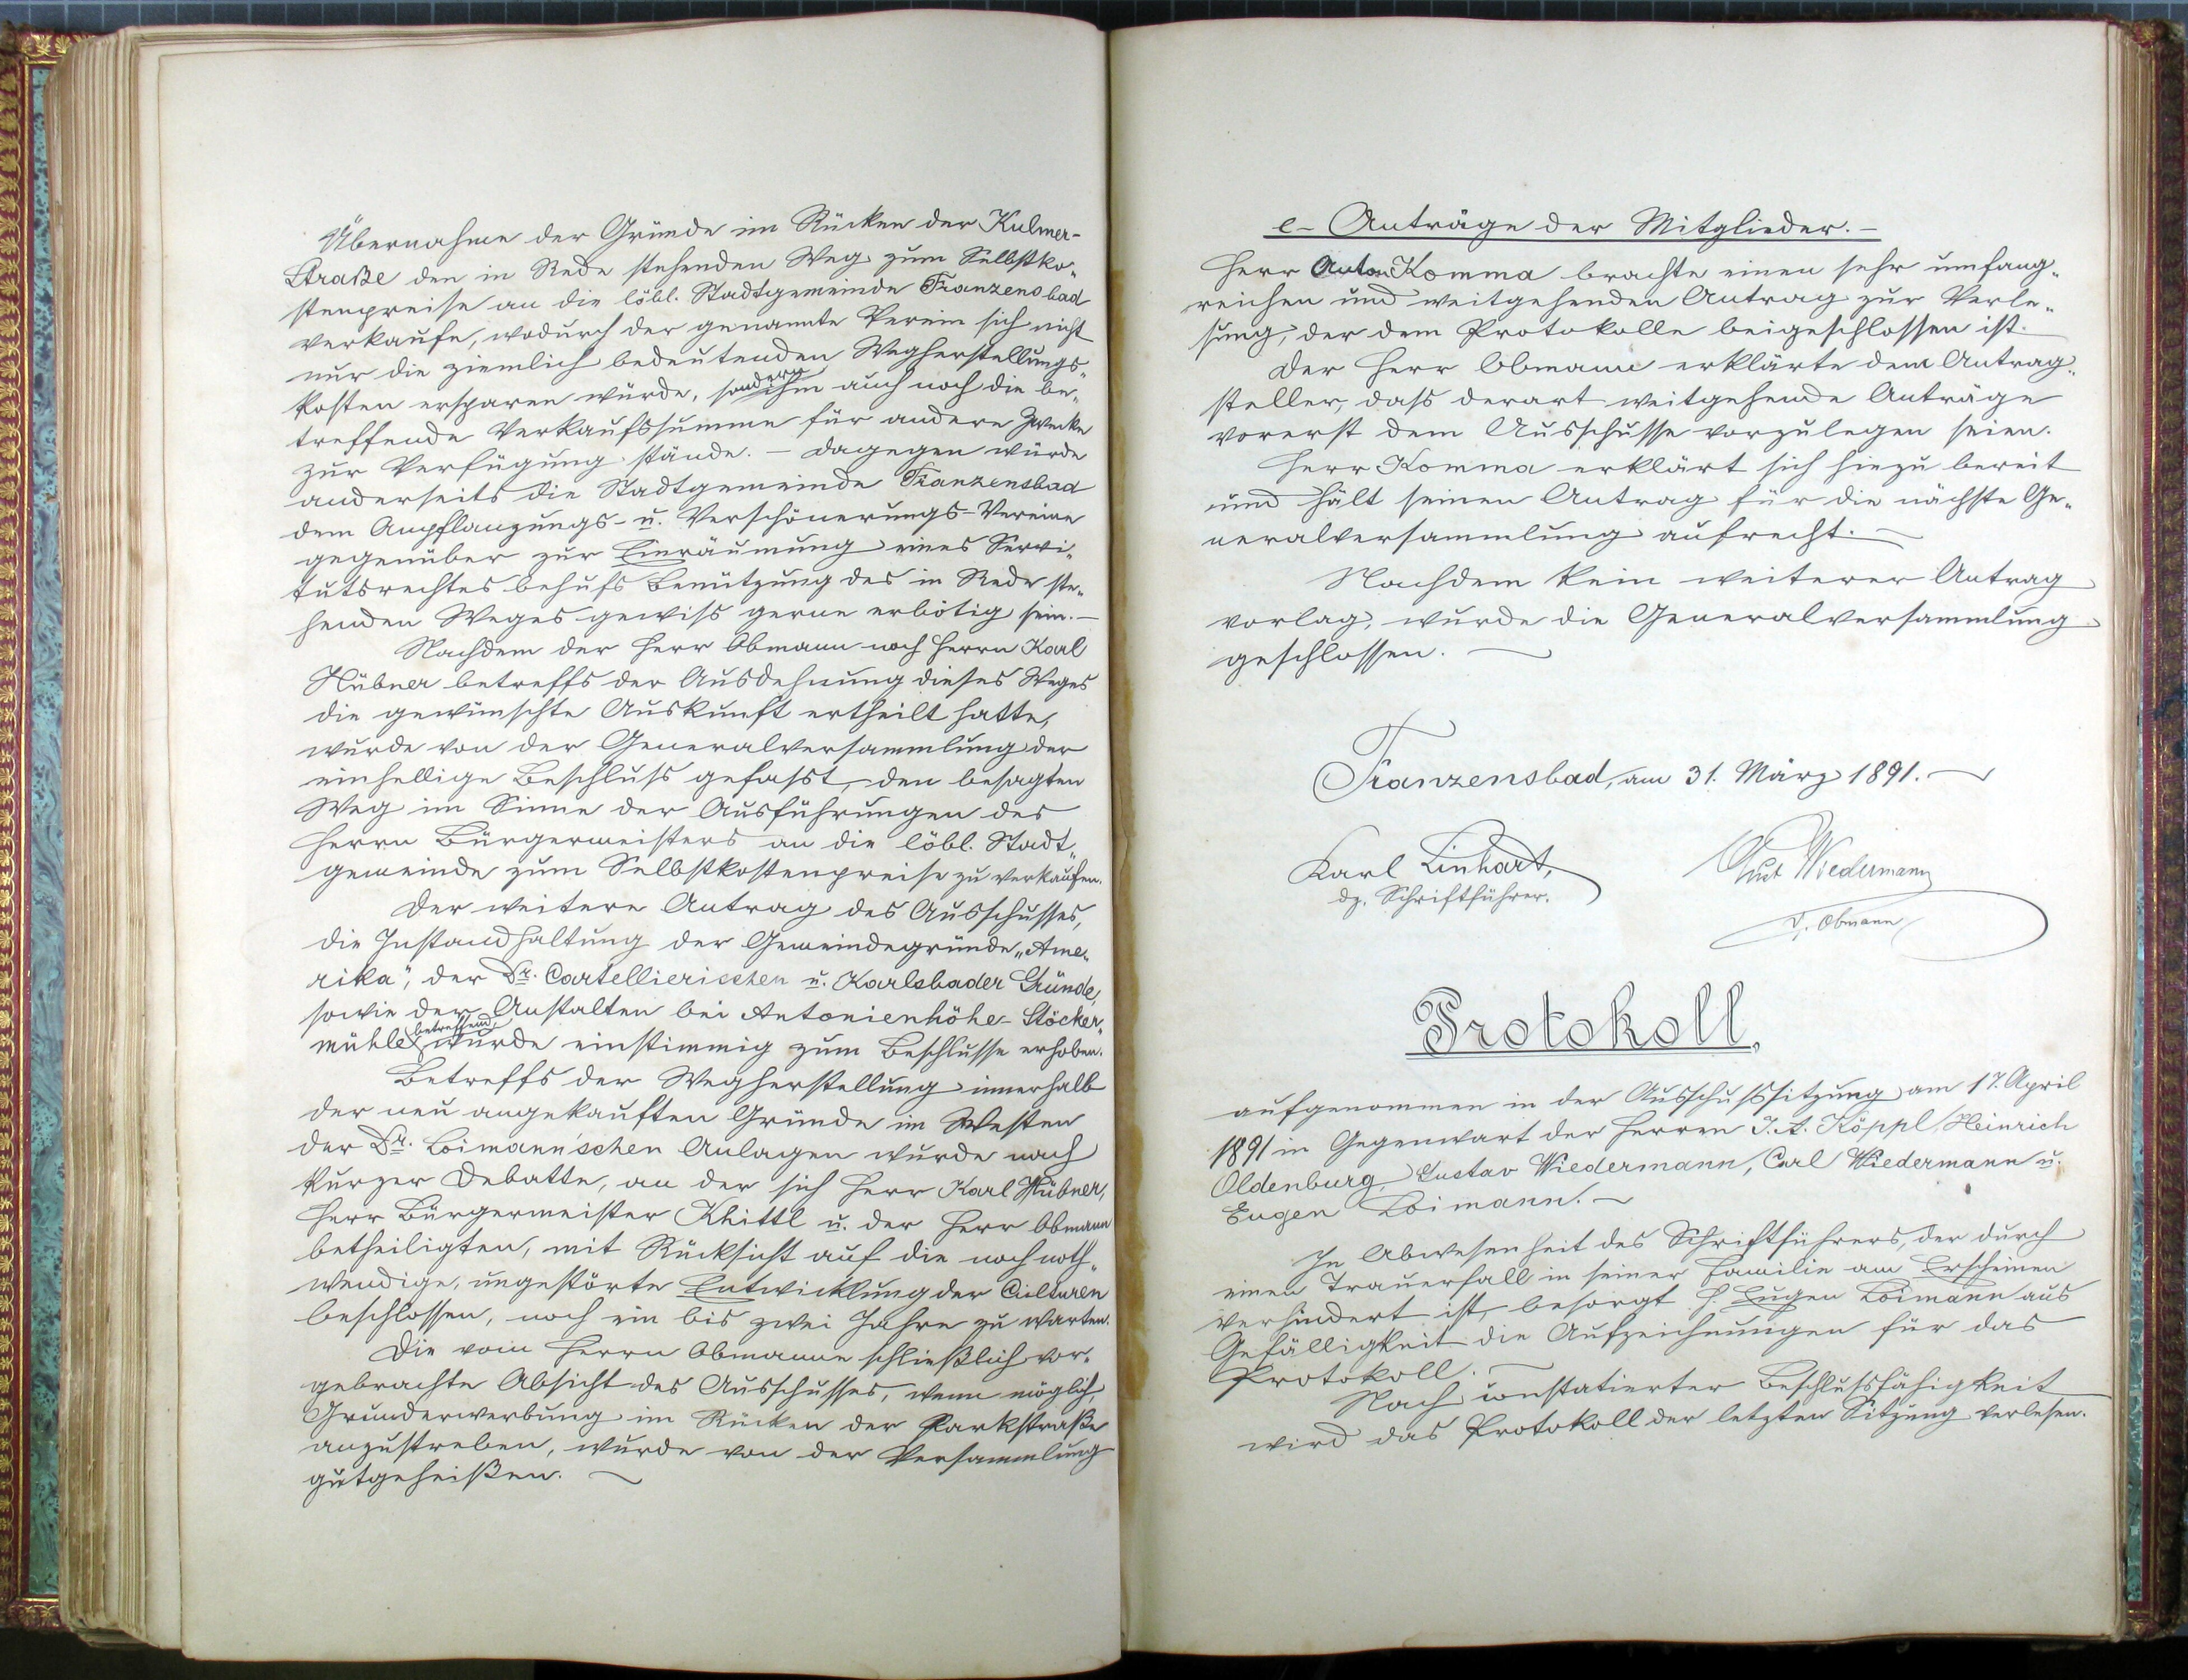 Übernahme der Gründe im Rücken der Kulmer-
Straße den in Rede stehenden Weg zum Selbstko-
stenpreise an die löbl. Stadtgemeinde Franzensbad
verkaufe, wodurch der genannte Verein sich nicht
nur die ziemlich bedeutenden Wegherstellungs-
kosten ersparen würde, sondern ihm auch noch die be-
treffende Verkaufssumme für andere Zwecke
zur Verfügung stände. – Dagegen würde
anderseits die Stadtgemeinde Franzensbad
dem Anpflanzungs- u. Verschönerungs-Vereine
gegenüber zur Einräumung eines Servi-
tutsrechtes behufs Benützung des in Rede ste-
henden Weges gewiss gerne erbötig sein. –
Nachdem der Herr Obmann noch Herrn Karl
Hübner betreffs der Ausdehnung dieses Weges
die gewünschte Auskunft ertheilt hatte,
wurde von der Generalversammlung der
einhellige Beschluss gefasst, den besagten
Weg im Sinne der Ausführungen des
Herrn Bürgermeisters an die löbl. Stadt-
gemeinde zum Selbstkostenpreise zu verkaufen.
Der weitere Antrag des Ausschusses,
die Instandhaltung der Gemeindegründe „Ame-
rika", der Dr. Cartellierischen u. Karlsbader Gründe,
sowie der Anstalten bei Antonienhöhe-Stöcker-
mühle betreffend, wurde einstimmig zum Beschlusse erhoben.
Betreffs der Wegherstellung innerhalb
der neu angekauften Gründe im Westen
der Dr. Loimann'schen Anlagen wurde nach
kurzer Debatte, an der sich Herr Karl Hübner,
Herr Bürgermeister Khittl u. der Herr Obmann
betheiligten, mit Rücksicht auf die noch noth-
wendige, ungestörte Entwicklung der Culturen
beschlossen, noch ein bis zwei Jahre zu warten.
Die vom Herrn Obmanne schließlich vor-
gebrachte Absicht des Ausschusses, wenn möglich,
Grunderwerbung im Rücken der Parkstraße
anzustreben, wurde von der Versammlung
gutgeheißen. –
e- Anträge der Mitglieder. –
Herr Anton Komma brachte einen sehr umfang-
reichen und weitgehenden Antrag zur Verle-
sung, der dem Protokolle beigeschlossen ist.
Der Herr Obmann erklärte dem Antrag-
steller, dass derart weitgehende Anträge
vorerst dem Ausschusse vorzulegen seien.
Herr Komma erklärt sich hiezu bereit
und hält seinen Antrag für die nächste Ge-
neralversammlung aufrecht. –
Nachdem kein weiterer Antrag
vorlag, wurde die Generalversammlung
geschlossen. –
Franzensbad, am 31. März 1891. –
Karl Linhart,
dz. Schriftführer.
Wiedermann
d. z. Obmann
Protokoll,
aufgenommen in der Ausschusssitzung am 17. April
1891 in Gegenwart der Herren J. A. Köppl, Heinrich
Oldenburg, Gustav Wiedermann, Carl Wiedermann u.
Eugen Loimann. –
In Abwesenheit des Schriftführers, der durch
einen Trauerfall in seiner Familie am Erscheinen
verhindert ist, besorgt H. Eugen Loimann aus
Gefälligkeit die Aufzeichnungen für das
Protokoll. –
Nach constatierter Beschlussfähigkeit
wird das Protokoll der letzten Sitzung verlesen.